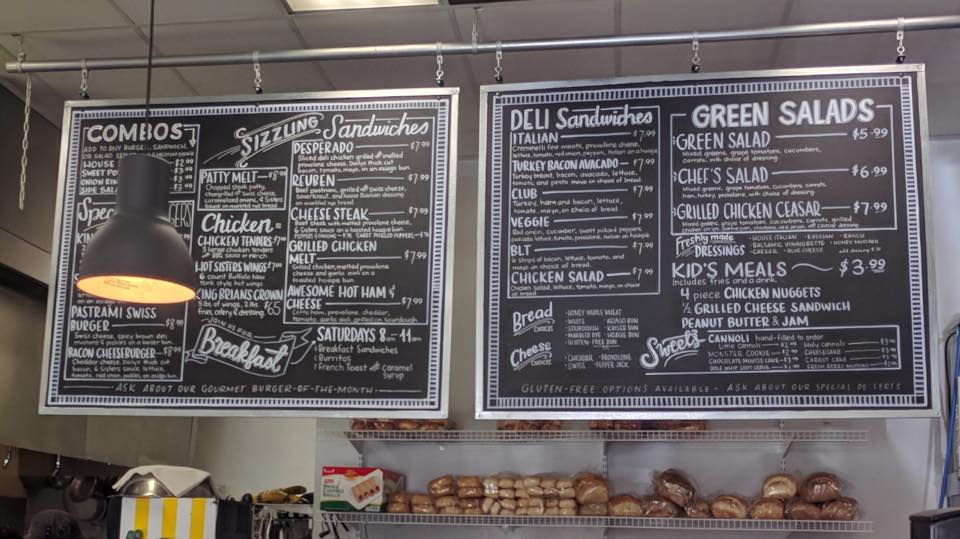 COMBOS
ADD TO ANY BURGER, SANDWICH,
OR SALAD
HOUSE $2.99
SWEET $2.99
ONION
SIDE SALAD $3.49
PASTRAMI SWISS
BURGER $8.99
BACON CHEESEBURGER
Cheddar cheese, Dailys thick cut
bacon, 6 Sisters sauce, lettuce,
SIZZLING Sandwiches
PATTY MELT
Chopped steak patty,
chargrilled swiss cheese,
caramelized onions, 6 Sisters
Sauce on marbled rye bread
Chicken
CHICKEN TENDERS $7.99
3 large chicken tenders
BBQ sauce or ranch
HOT SISTERS WINGS $7.99
6 count Buffalo New
York style hot wings
KING BRIANS CROWN
5 lbs of wings, 2 lbs. $65
fries, celery & dressing
DESPERADO $7.99
Sliced deli chicken grilled melted
provolone cheese, Dailys thick cut
bacon, tomato, mayo, on an asiago bun
REUBEN $7.99
Beef pastrami, grilled swiss cheese,
Sauerkraut, and house Russian dressing
on marbled rye
CHEESE STEAK $7.99
Beef steak with melted provolone cheese,
6 Sisters Sauce on a toasted hoagie bun
GRILLED CHICKEN
MELT $7.99
Grilled chicken, melted provolone
cheese and garlic aioli on a
toasted hoagie bun
AWESOME HOT HAM &
CHEESE $7.99
Cotto ham, provolone, cheddar,
tomato, garlic aioli, grilled on sourdough
JOIN US FOR
Breakfast
SATURDAYS 8AM-11AM
Breakfast Sandwiches
Burritos
French Toast with Caramel Syrup
ASK ABOUT OUR GOURMET BURGER-OF-THE-MONTH
DELI Sandwiches
ITALIAN $7.99
Creminelli fine meats, provolone cheese,
lettuce, tomato, red onion, pepperoncini, Italian on asiago
TURKEY BACON AVOCADO $7.99
Turkey breast, bacon, avocado, lettuce,
tomato, and pesto mayo on choice of bread
CLUB $7.99
Turkey, ham and bacon, lettuce,
tomato, mayo, on choice of bread
VEGGIE $7.99
Red onion, cucumber, sweet pickled peppers,
avocado, lettuce, tomato, provolone, Italian on hoagie
BLT $7.99
6 strips of bacon, lettuce, tomato, and
mayo on choice of bread
CHICKEN SALAD $7.99
Chicken salad, lettuce, tomato, mayo, on choice
of bread
Bread CHOICES
HONEY WHOLE WHEAT
WHITE · ASIAGO BUN
SOURDOUGH · KAISER BUN
MARBLED RYE · HOAGIE BUN
GLUTEN-FREE BUN
Cheese CHOICES
CHEDDAR · PROVOLONE
SWISS · PEPPER JACK
GREEN SALADS
GREEN SALAD $5.99
Mixed greens, grape tomatoes, cucumbers,
carrots, with choice of dressing
CHEF'S SALAD $6.99
Mixed greens, grape tomatoes, cucumbers, carrots,
ham, turkey, provolone, with choice of dressing
GRILLED CHICKEN CEASAR $7.99
Mixed greens, grape tomatoes, cucumbers, carrots, grilled
Freshly made
DRESSINGS
HOUSE ITALIAN · RUSSIAN · RANCH
BALSAMIC VINAIGRETTE · HONEY MUSTARD
CAESAR · BLUE CHEESE
KID'S MEALS $3.99
Includes fries and a drink
4 piece CHICKEN NUGGETS
1/2 GRILLED CHEESE SANDWICH
PEANUT BUTTER & JAM
Sweets
CANNOLI hand-filled to order
Little Cannoli Big Cannoli
MONSTER COOKIE CHEESECAKE
CHOCOLATE MOUSSE CAKE CARROT CAKE
DOLE WHIP SOFT SERVE FRESH BERRY MUFFINS
GLUTEN-FREE OPTIONS AVAILABLE - ASK ABOUT OUR SPECIAL DESSERTS